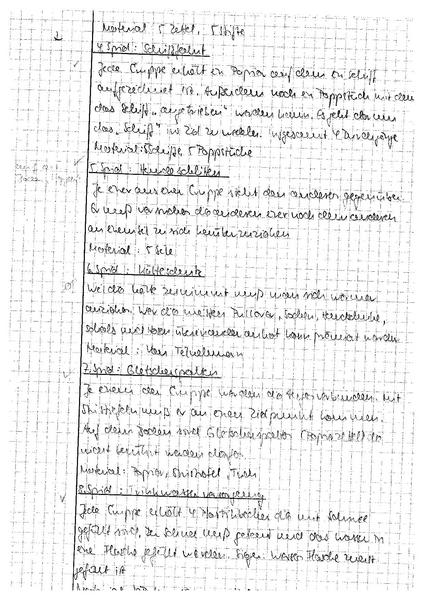 Material 5 Zettel, 5 Stifte
4. Spiel: Schiffahrt
Jede Gruppe erhält ein Papier auf dem ein Schiff
aufgezeichnet ist. Außerdem noch ein Pappstück mit dem
das Schiff "angetrieben" werden kann. Es geht darum
das "Schiff" ins Ziel zu wedeln. Insgesamt 4 Durchgänge
Material: 5 Schiffe, 5 Pappstücke
5. Spiel: Hundeschlitten
Je einer aus einer Gruppe steht den anderen gegenüber.
Er muß versuchen die anderen einer nach dem anderen
an einem Seil zu sich herüberzuziehen
Material: 5 Seile
6. Spiel:
Weil die Kälte zunimmt muß man sich wärmer
anziehen. Wer die meisten Pullover, Socken, Handschuhe,
Schals und übereinander anhat kann prämiert werden
Material: Von Teilnehmern
7. Spiel: Gletscherspalten
Je einem der Gruppe werden die Augen verbunden. Mit
Skistiefeln muß er an einen Zielpunkt kommen.
Auf dem Boden sind Gletscherspalten (Papierzettel) die
nicht berührt werden dürfen.
Material: Papier, Skistiefel, Tuch
8. Spiel: Trinkwasserversorgung
Jede Gruppe erhält 4 die mit Schnee
gefüllt sind. Der Schnee muß getaut und das Wasser in
eine Flasche gefüllt werden. Sieger: Wessen Flasche zuerst
gefüllt ist